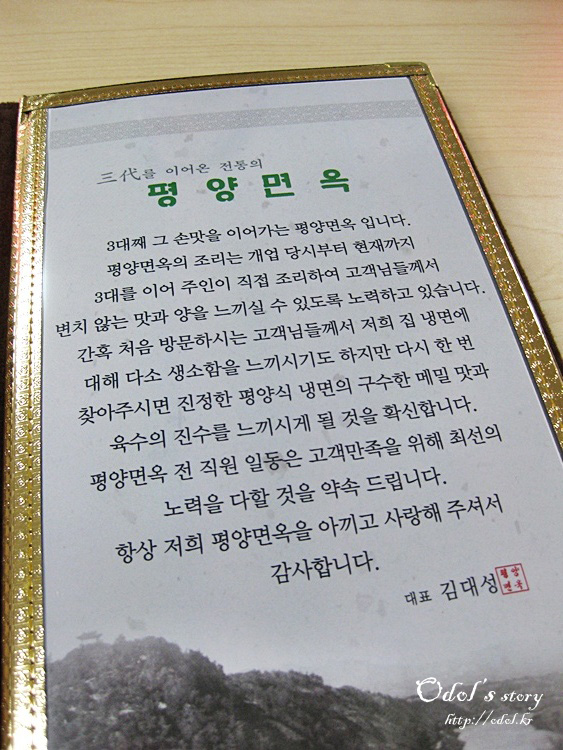 三代를 이어온 전통의
평양면옥
3대째 그 손맛을 이어가는 평양면옥 입니다.
평양면옥의 조리는 개업 당시부터 현재까지
3대를 이어 주인이 직접 조리하여 고객님들께서
변치 않는 맛과 양을 느끼실 수 있도록 노력하고 있습니다.
간혹 처음 방문하시는 고객님들께서 저희 집 냉면에
대해 다소 생소함을 느끼시기도 하지만 다시 한 번
찾아주시면 진정한 평양식 냉면의 구수한 메밀 맛과
육수의 진수를 느끼시게 될 것을 확신합니다.
평양면옥 전 직원 일동은 고객만족을 위해 최선의
노력을 다할 것을 약속 드립니다.
항상 저희 평양면옥을 아끼고 사랑해 주셔서
감사합니다.
대표 김대성
평양
면옥
Odol's story
http://odol.kr